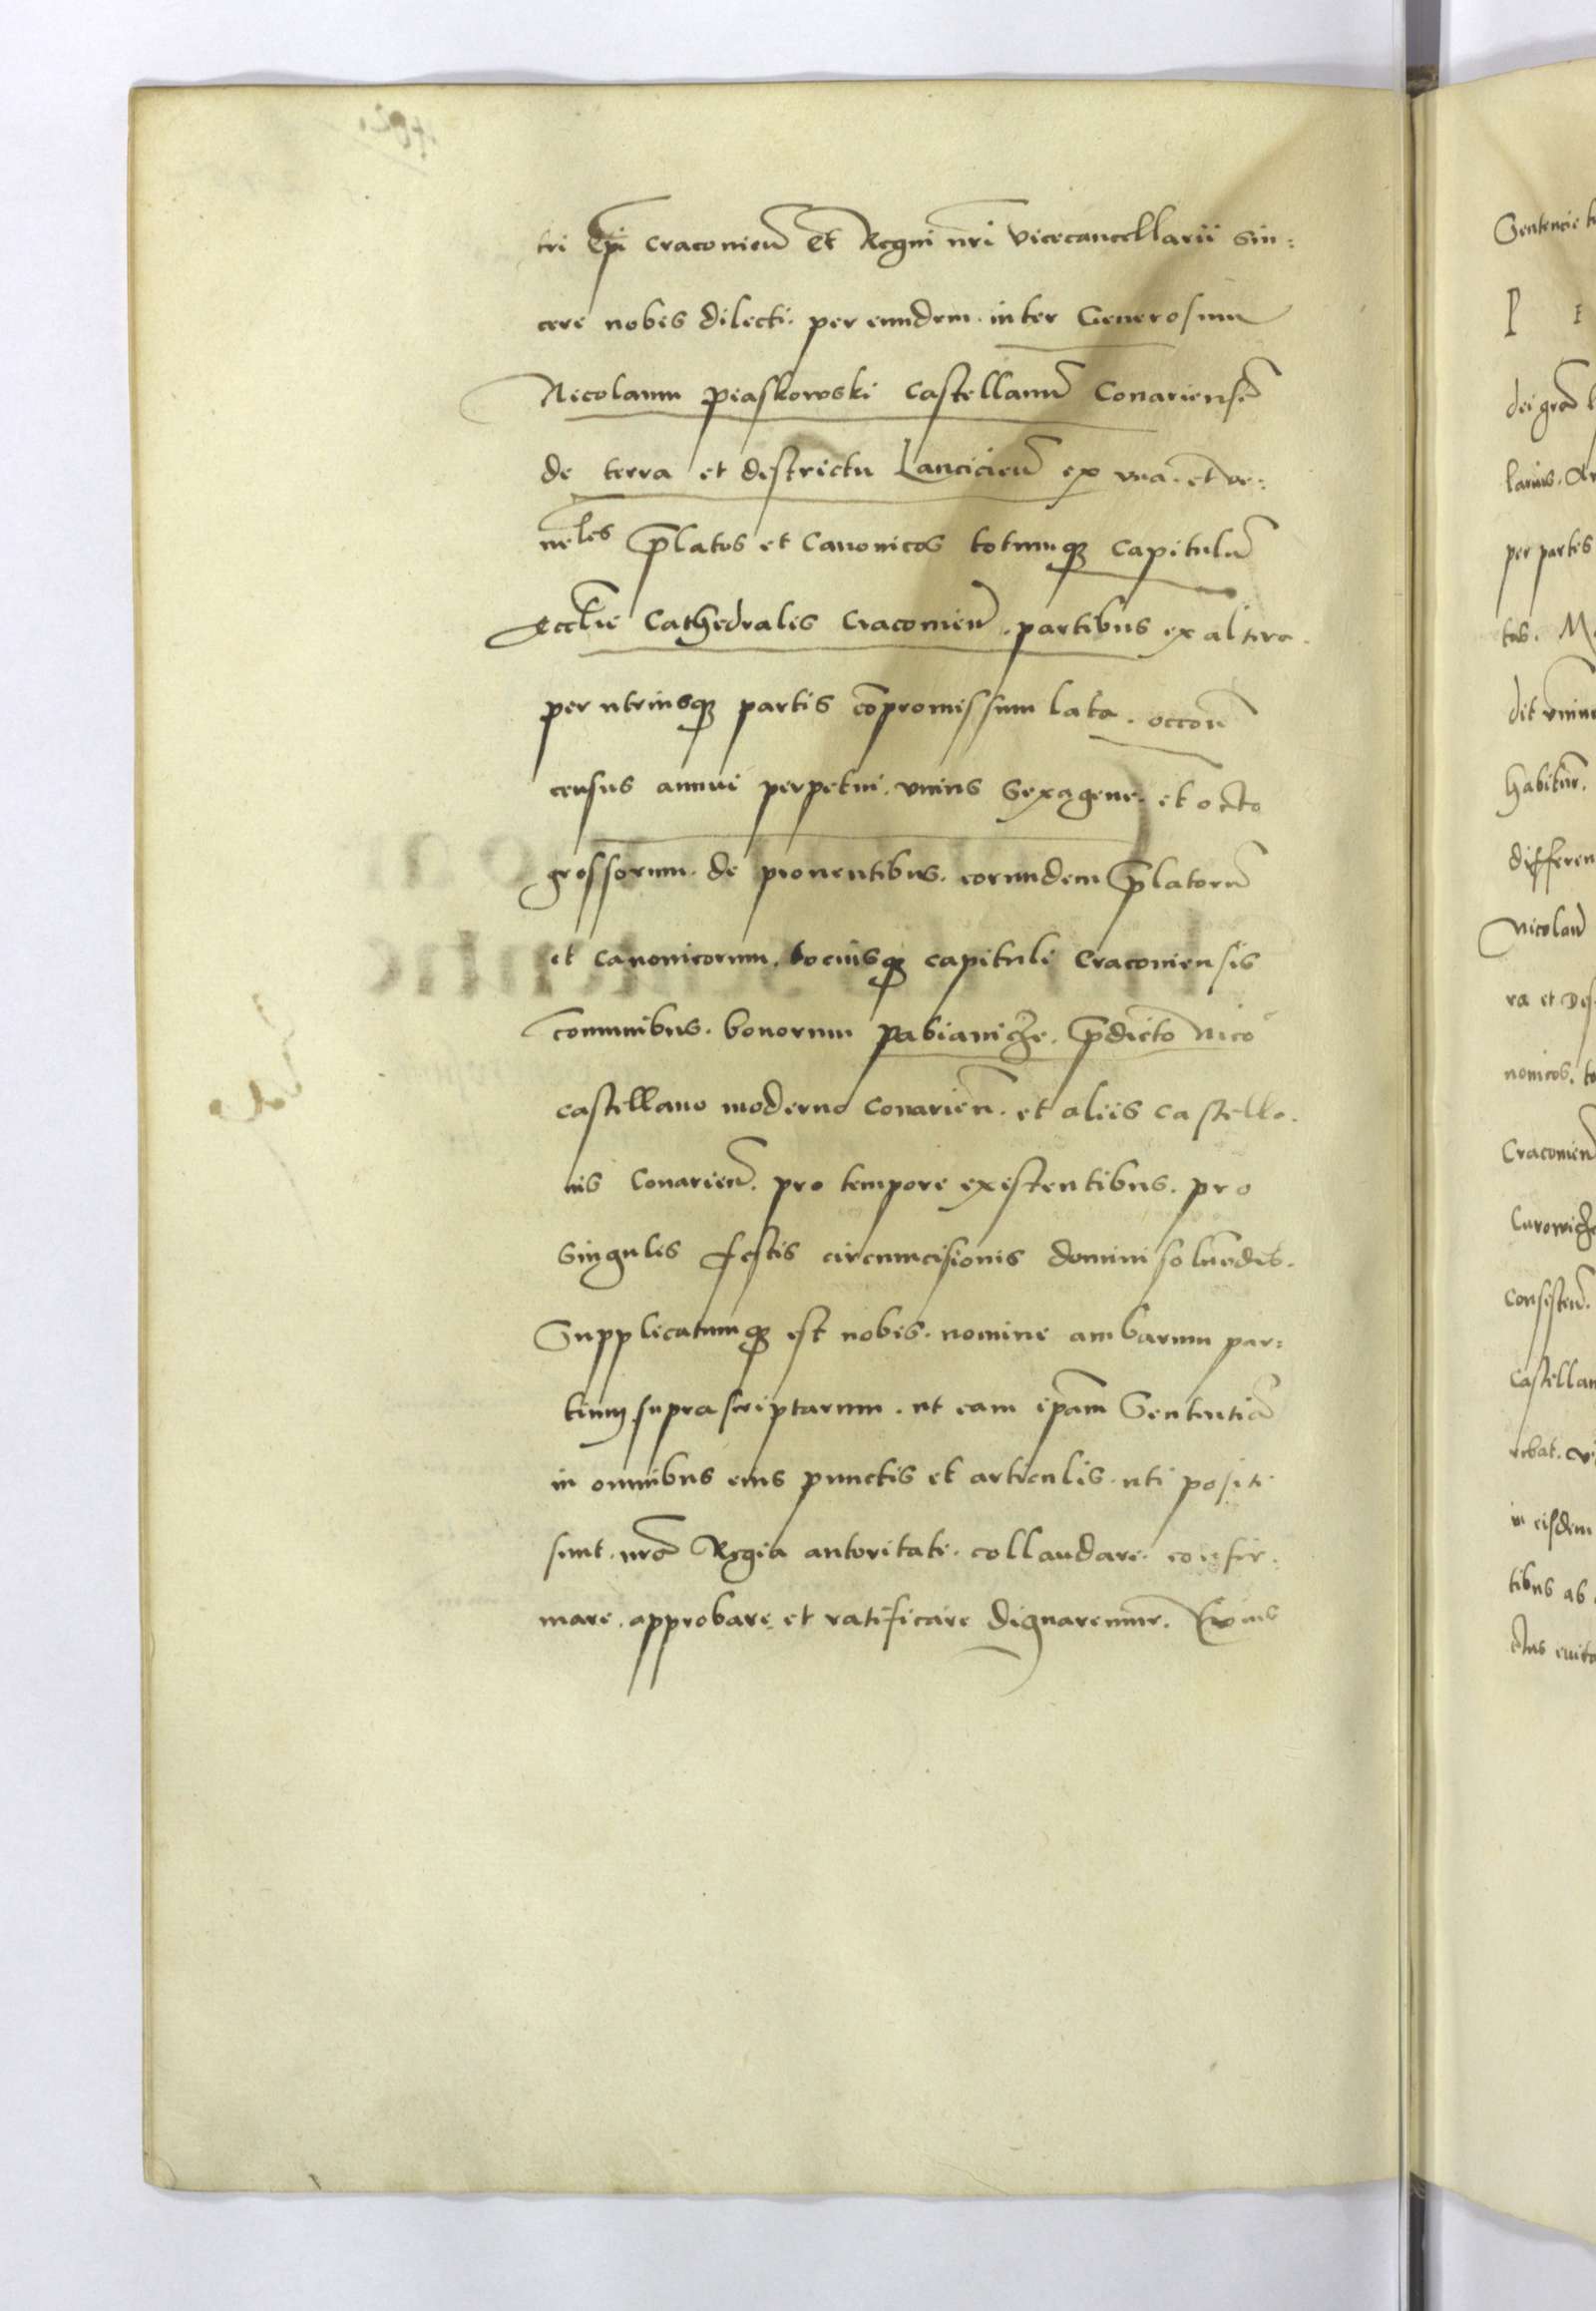 tri Epi Cracovien̄ et Regni nr̄i Vicecancellarii sin:
cere nobis dilecti. per eundem. inter Generosum
Nicolaum piaskowski Castellanū Conariensē
de terra et districtu Lancicien̄ ex vna. et ve:
neles p̄latos et Canonicos totumq3 Capitulū
Eccl̄ie Cathedralis Cracovien̄. partibus ex altera.
per utriusq3 partis cōpromissum lata. occon̄e
census annui perpetui. vnius sexagene. et octo
grossorum. de proventibus. eorundem p̄latorū
et Canonicorum. tociusq3 capituli Cracoviensis
communibus. bonorum pabianicze. p̄dicto Nico
castellano moderno Conarien̄. et aliis castella.
nis Conarien̄. pro tempore existentibus. pro
singulis festis circumcisionis domini solvēdis.
Supplicatumq3 est nobis. nomine ambarum par:
tium suprascriptarum. ut eam ip̄am Sententiā
in omnibus eius punctis et articulis. uti positi
sunt. nr̄a Regia autoritate. collaudare. confir:
mare. approbare. et ratificare dignaremur.
Sentencie
P
dei grā
larius.
per partes
tas.
dit
habitur.
differen
Nicolaū
ra et Des
nonicos. to
Cracovien̄
Consisten̄.
Castellan
rebat.
in eisdem
tibus ab